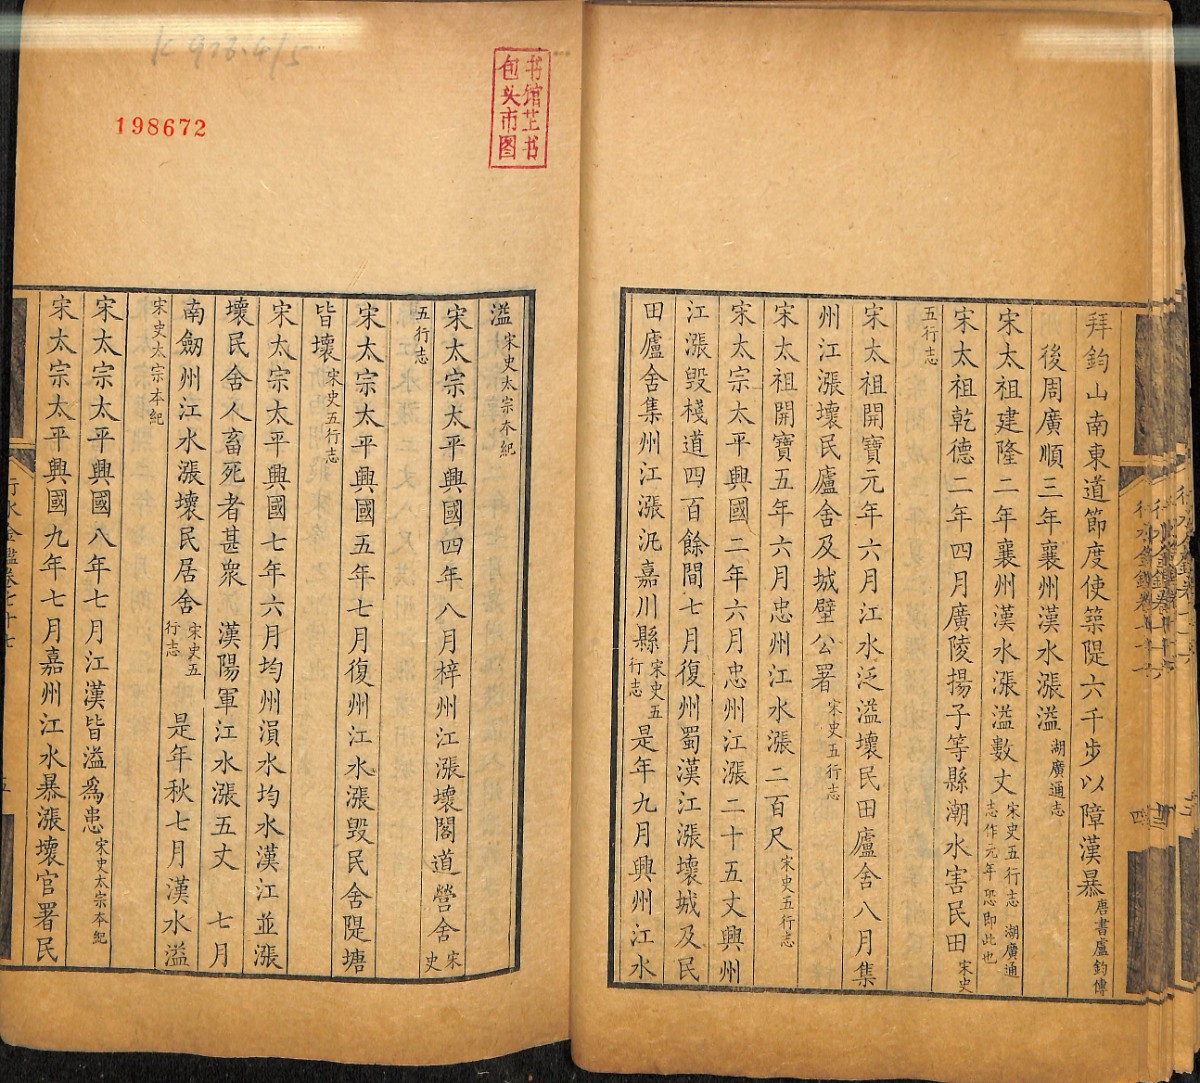 拜鈞山南東道節度使築隄六千步以障漢暴唐書盧鈞傳
後周廣順三年襄州漢水漲溢湖廣通志
宋太祖建隆二年襄州漢水漲溢數丈宋史五行志 湖廣通志作元年恐即此也
宋太祖乾德二年四月廣陵揚子等縣潮水害民田宋史
五行志
宋太祖開寶元年六月江水泛溢壞民田廬舍八月集
州江漲壞民廬舍及城壁公署宋史五行志
宋太祖開寶五年六月忠州江水漲二百尺宋史五行志
宋太宗太平興國二年六月忠州江漲二十五丈興州
江漲毀棧道四百餘間七月復州蜀漢江漲壞城及民
田廬舍集州江漲汎嘉川縣宋史五行志是年九月興州江水
溢宋史太宗本紀
宋太宗太平興國四年八月梓州江漲壞閣道營舍宋史
五行志
宋太宗太平興國五年七月復州江水漲毀民舍隄塘
皆壞宋史五行志
宋太宗太平興國七年六月均州溳水均水漢江並漲
壞民舍人畜死者甚衆 漢陽軍江水漲五丈 七月
南劒州江水漲壞民居舍宋史五行志 是年秋七月漢水溢
宋史太宗本紀
宋太宗太平興國八年七月江漢皆溢爲患宋史太宗本紀
宋太宗太平興國九年七月嘉州江水暴漲壞官署民
行水金鑑卷七十七
五
四
书馆芷书
包头市图
198672